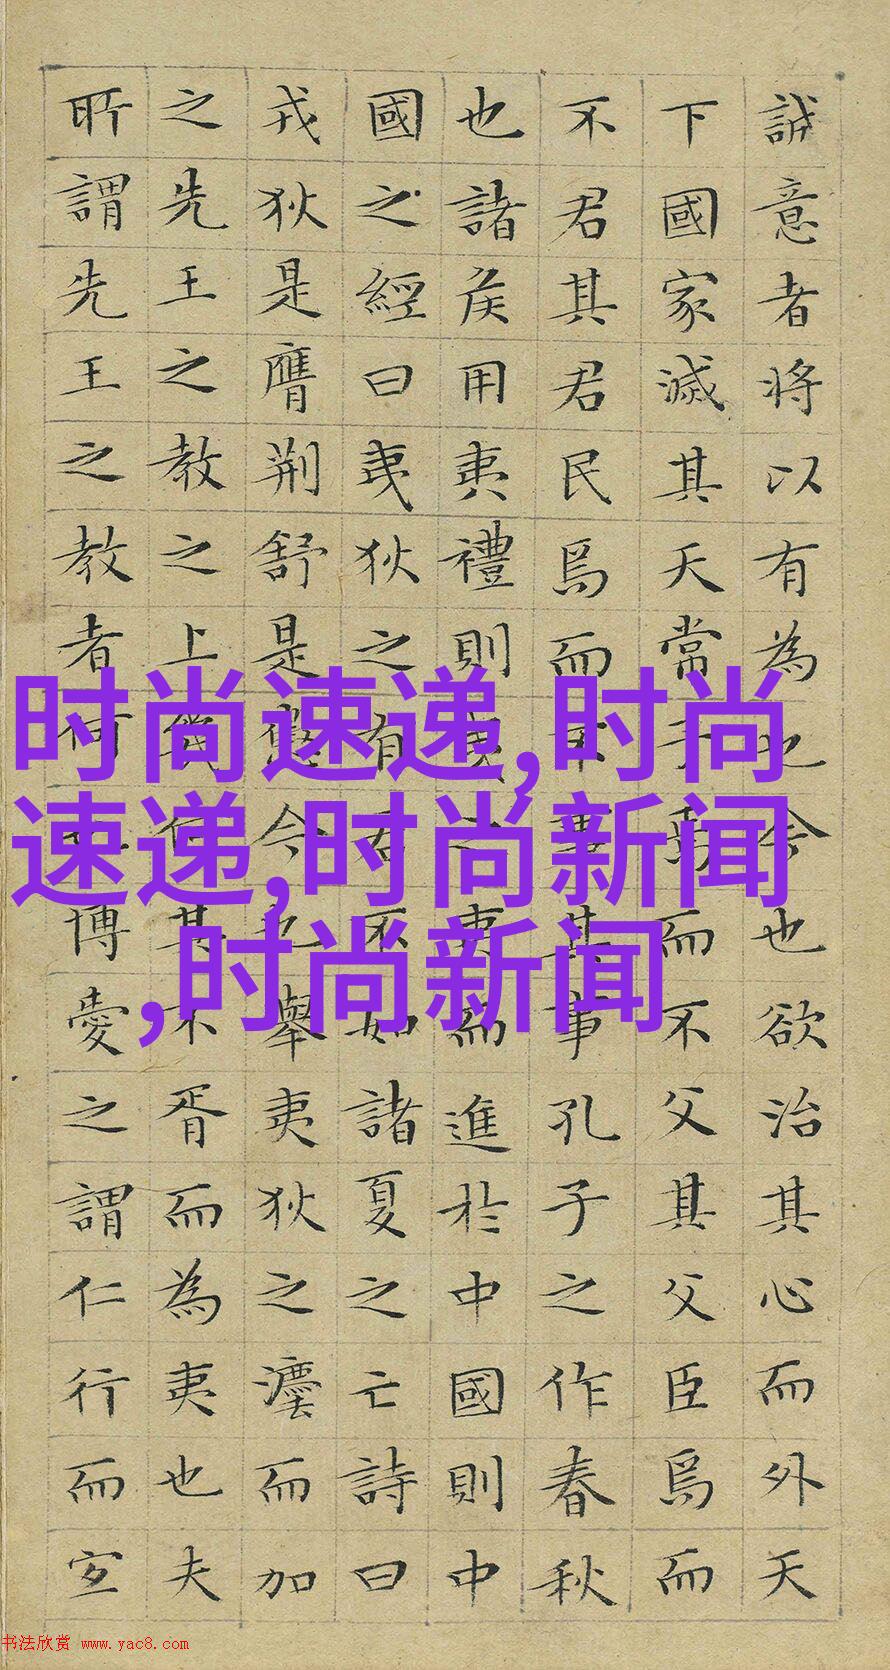 誠意者将以有為也今也欲治其心而外天
下國家滅其天常子焉而不父其父臣焉而
不君其君民焉而不事其事孔子之作春秋
也諸侯用夷禮則夷之夷而進於中國則中
國之經曰夷狄之有君不如諸夏之亡詩曰
戎狄是膺荆舒是懲今也舉夷狄之灋而加
之先王之教之上幾何其不胥而為夷也夫
所謂先王之教者何也博愛之謂仁行而宜
时尚速递,时尚
速递,时尚新闻
,时尚新闻
书法欣赏 www.yac8.com